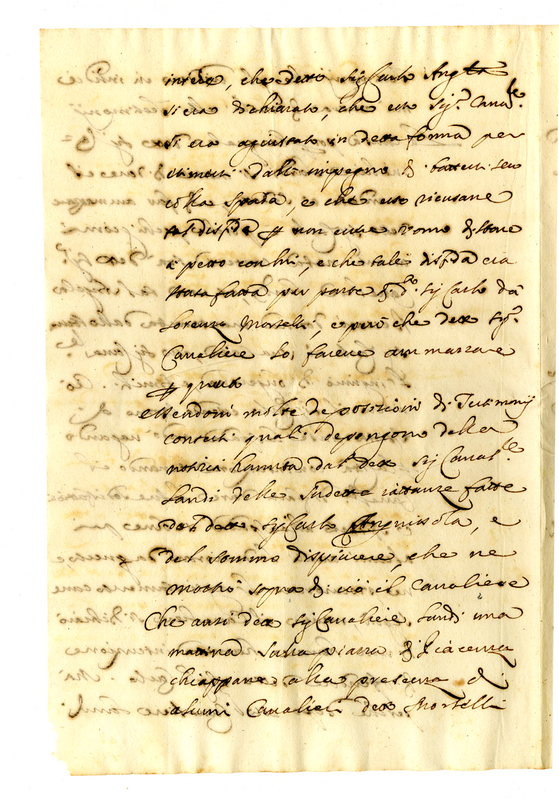 inteso, che detto Sig.r Carlo Ang
si era dichiarato, che esso Sig.r Caval.e
si era agiustato in detta forma per
esimersi dall'impegno di battersi seco
colla spada, e che esso ricusava
disfida non essere uomo di stare
a petto con lui, e che tale disfida era
stata fatta per parte di d.o Sig.r Carlo da
Lorenzo Mortelli, e però che detto Sig.r
Cavaliere lo farebbe ammazzare
essendovi molte deposizioni di Testimonij
contesti quali depongono della
notizia havuta dal detto Sig.r Caval.e
Landi delle sudette iattanze fatte
dal detto Sig.r Carlo Anguissola, e
del sommo dispiacere, che ne
mostrò sopra di ciò il Cavaliere
Che anzi detto Sig.r Cavaliere Landi una
mattina sulla piazza di Piacenza
alla presenza di
alcuni Cavalieri detto Mortelli